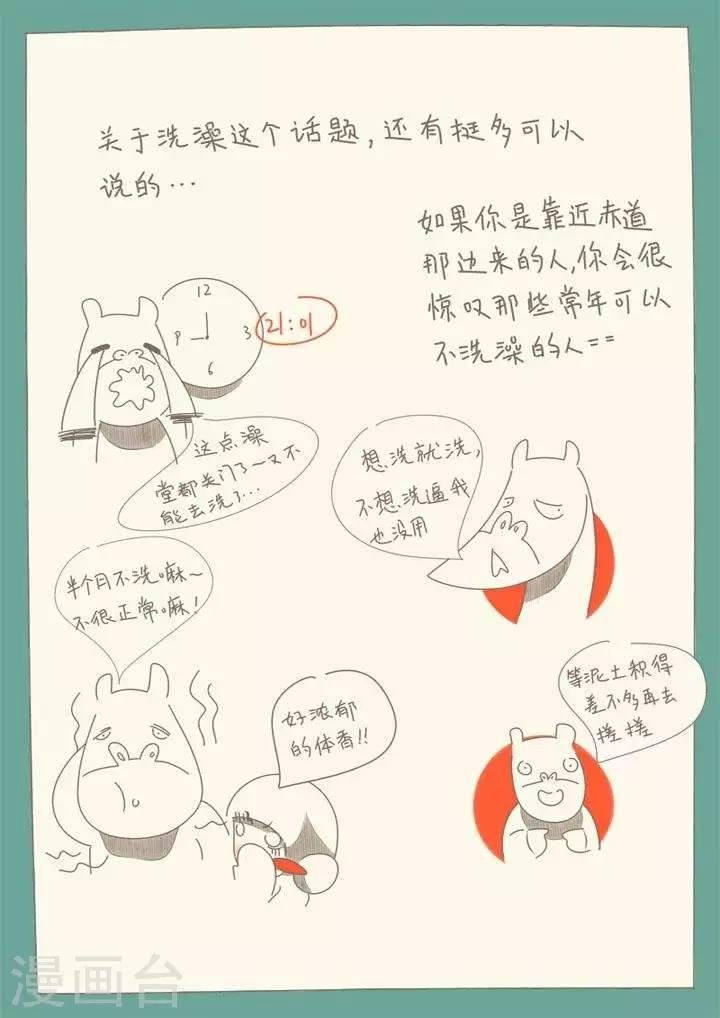 关于洗澡这个话题,还有挺多可以
说的…
如果你是靠近赤道
那边来的人,你会很
惊叹那些常年可以
不洗澡的人==
12
9
3
6
21:01
这点澡
堂都关门了~又不
能去洗了…
想洗就洗,
不想洗逼我
也没用
半个月不洗嘛~
不很正常嘛!
好浓郁
的体香!!
等泥土积得
差不多再去
搓搓
漫画台